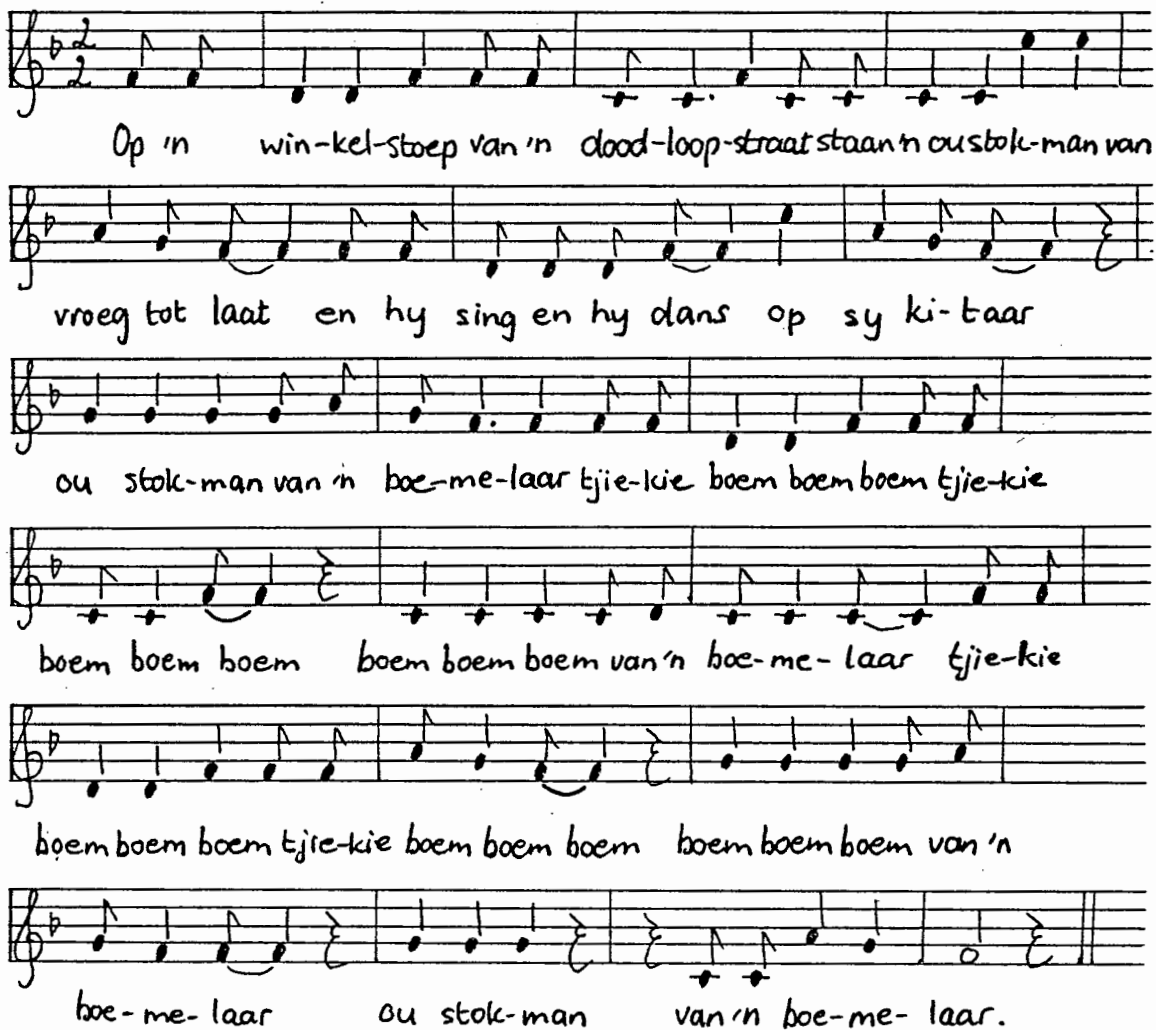 2
2
Op 'n win-kel-stoep van 'n dood-loop-straat staan 'n ou stok-man van
vroeg tot laat en hy sing en hy dans op sy ki-taar
ou stok-man van 'n boe-me-laar tjie-kie boem boem boem tjie-kie
boem boem boem boem boem boem van 'n boe-me-laar tjie-kie
boem boem boem tjie-kie boem boem boem boem boem boem van 'n
boe-me-laar ou stok-man van 'n boe-me-laar.